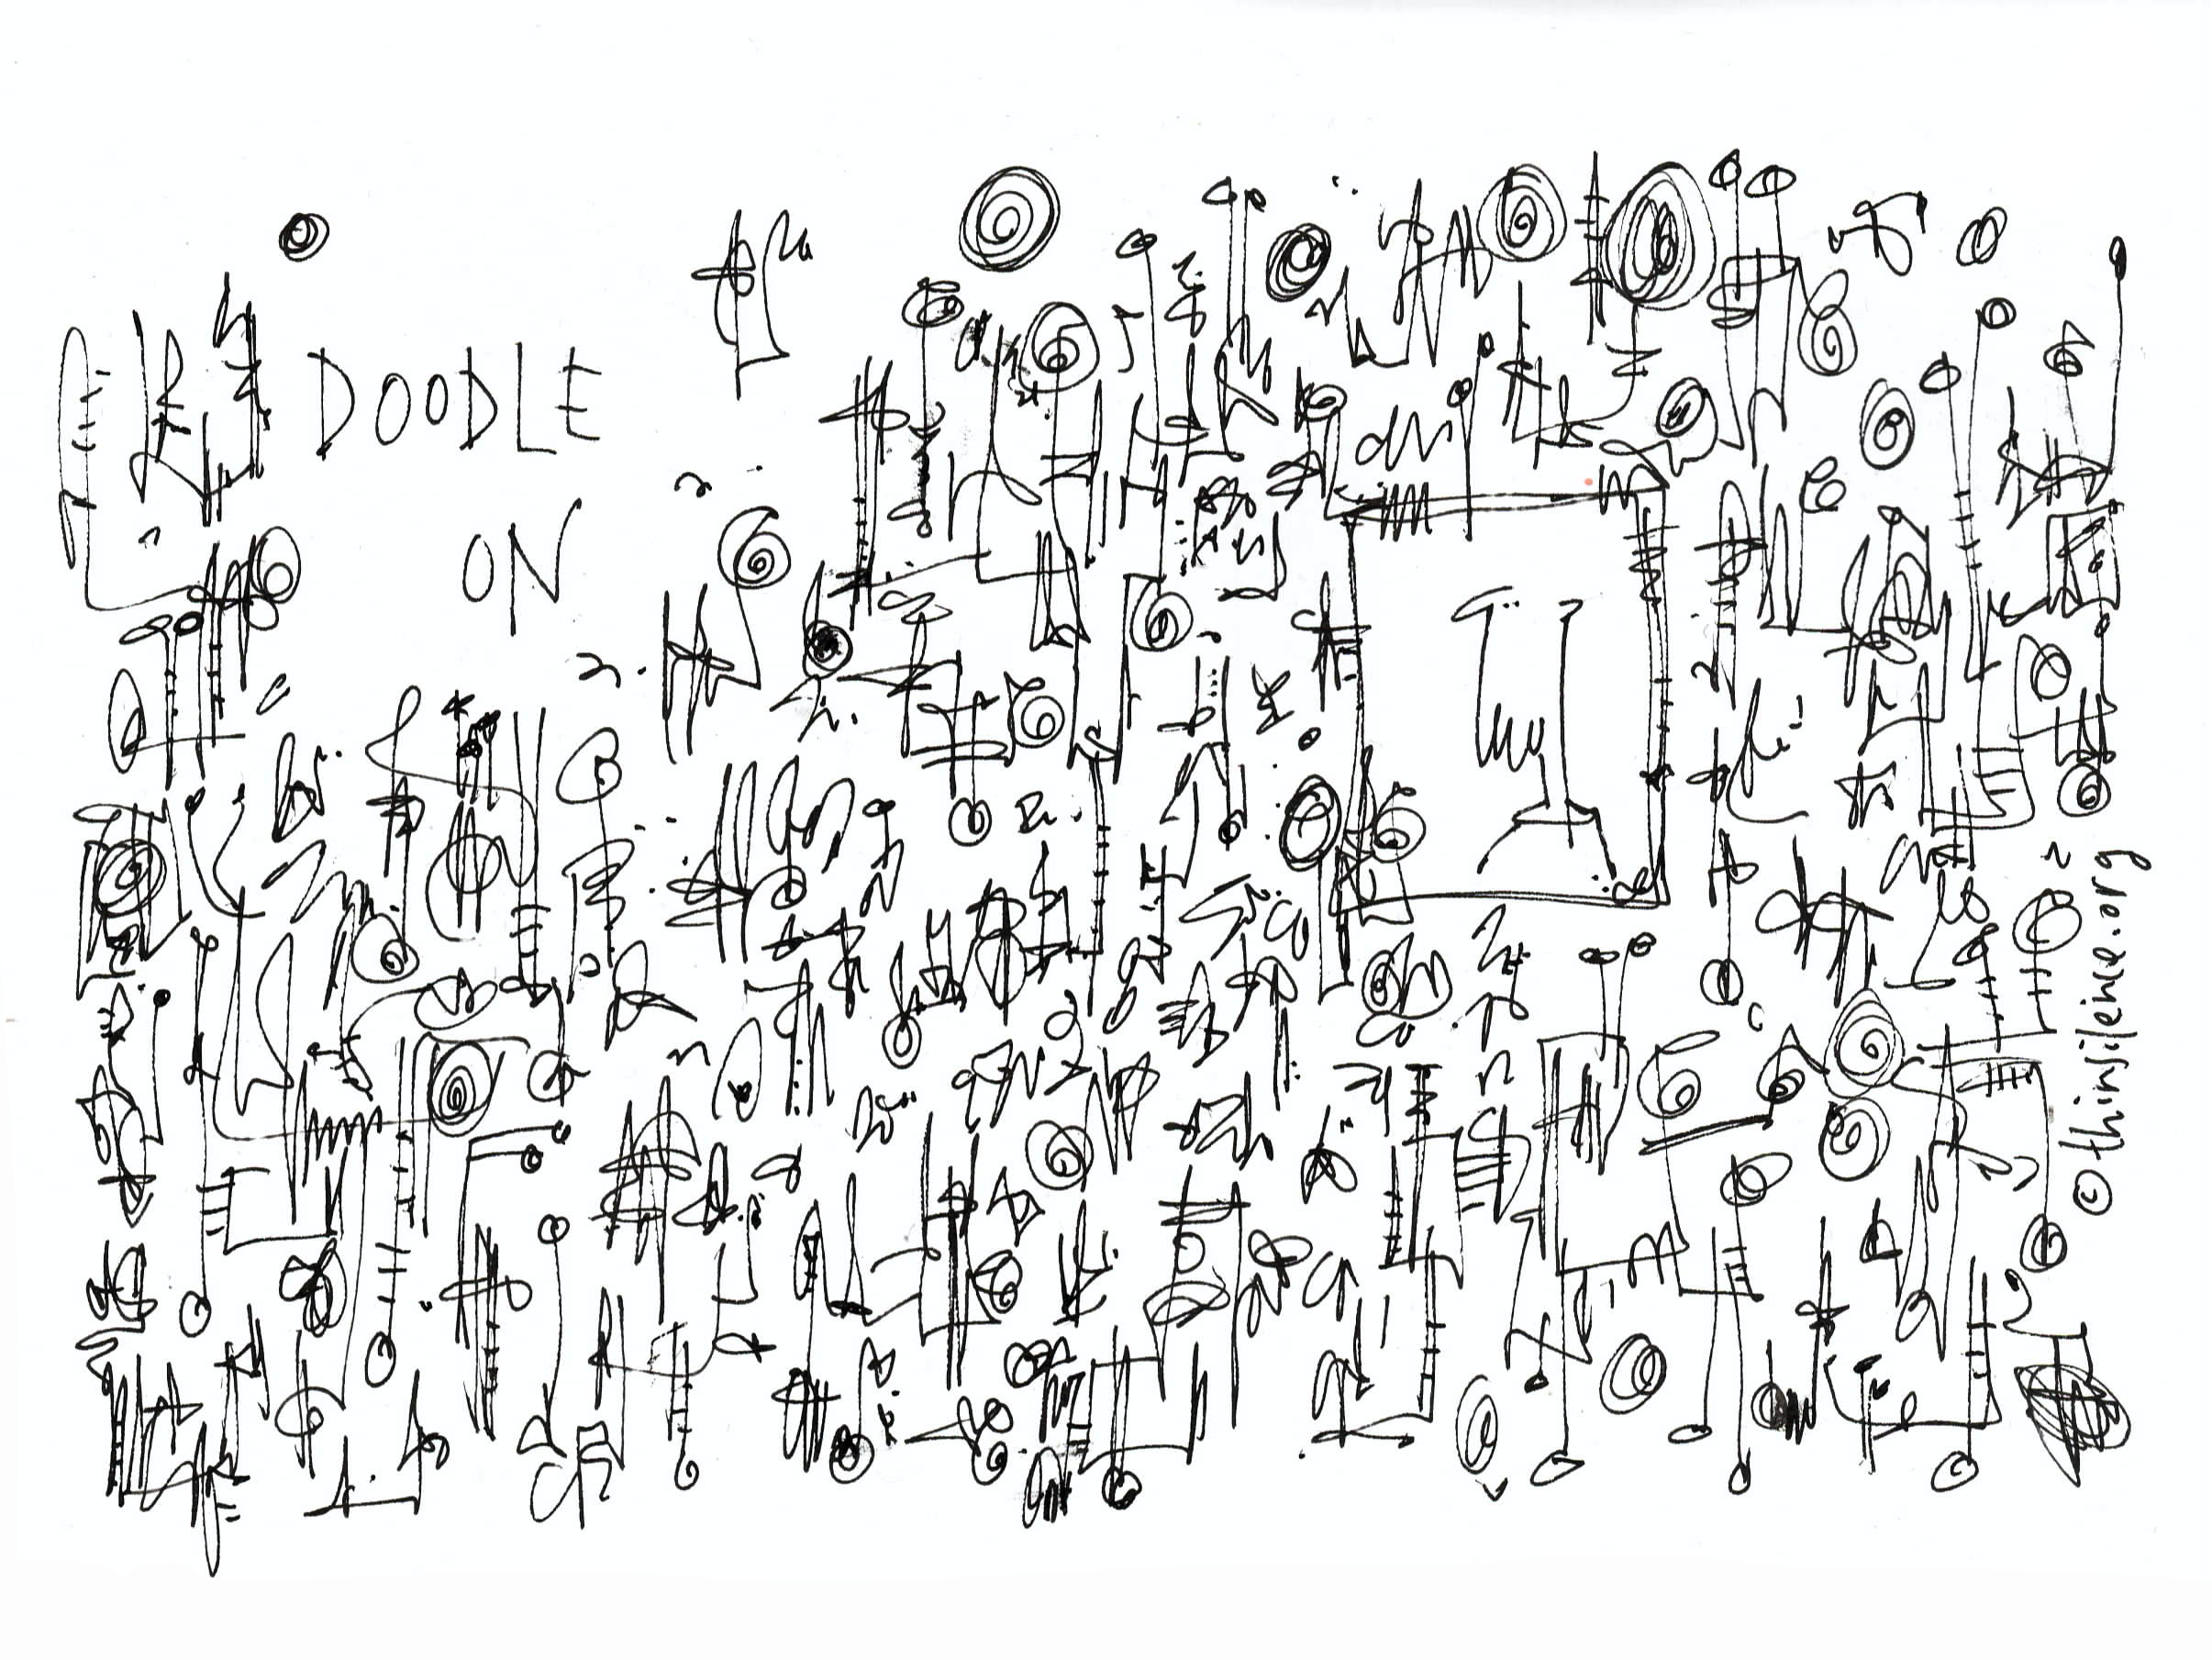 DOODLE
ON
© thinsileine.org